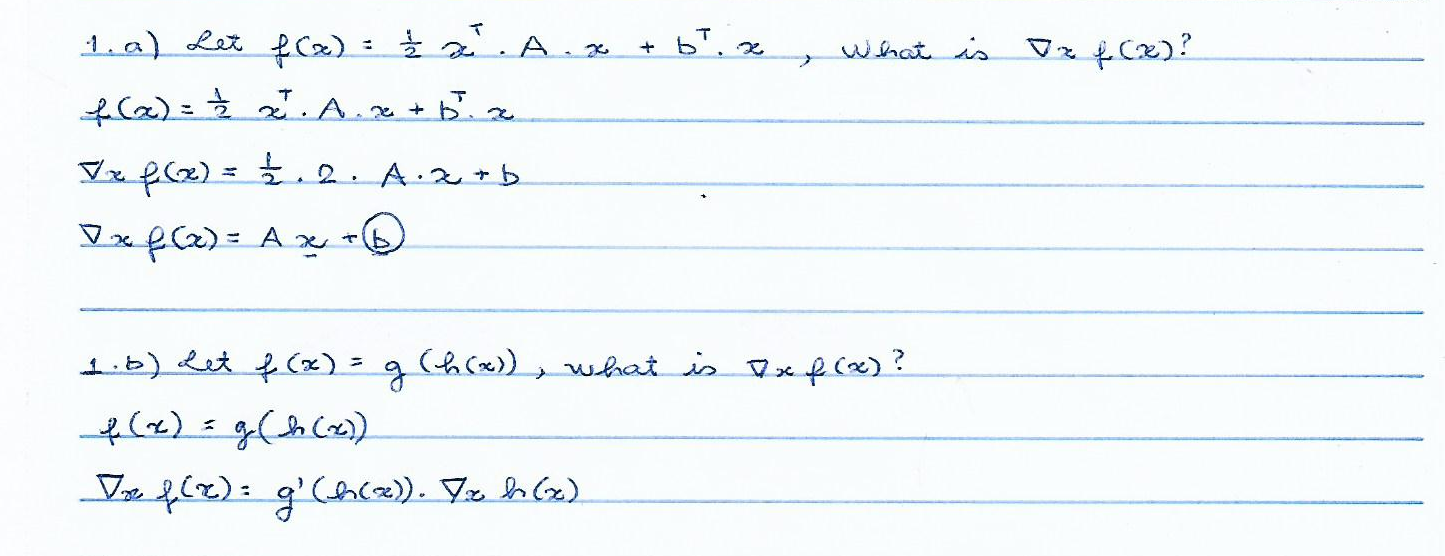 1.a) Let f(x) = ½ xᵀ . A . x + bᵀ. x , What is ∇x f(x)?
f(x) = ½ xᵀ . A . x + bᵀ. x
∇x f(x) = ½ . 2 . A . x + b
∇x f(x) = A x + b
1.b) Let f(x) = g (h(x)) , what is ∇x f(x)?
f(x) = g(h(x))
∇x f(x) = g'(h(x)). ∇x h(x)